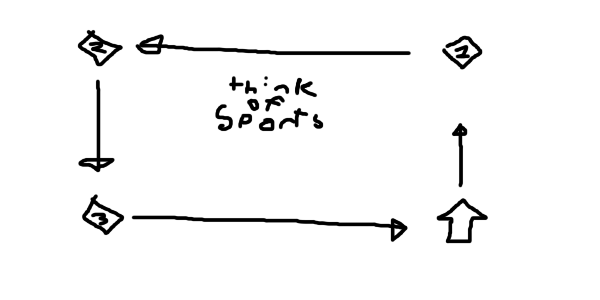 2 1
think
of
Sports
3